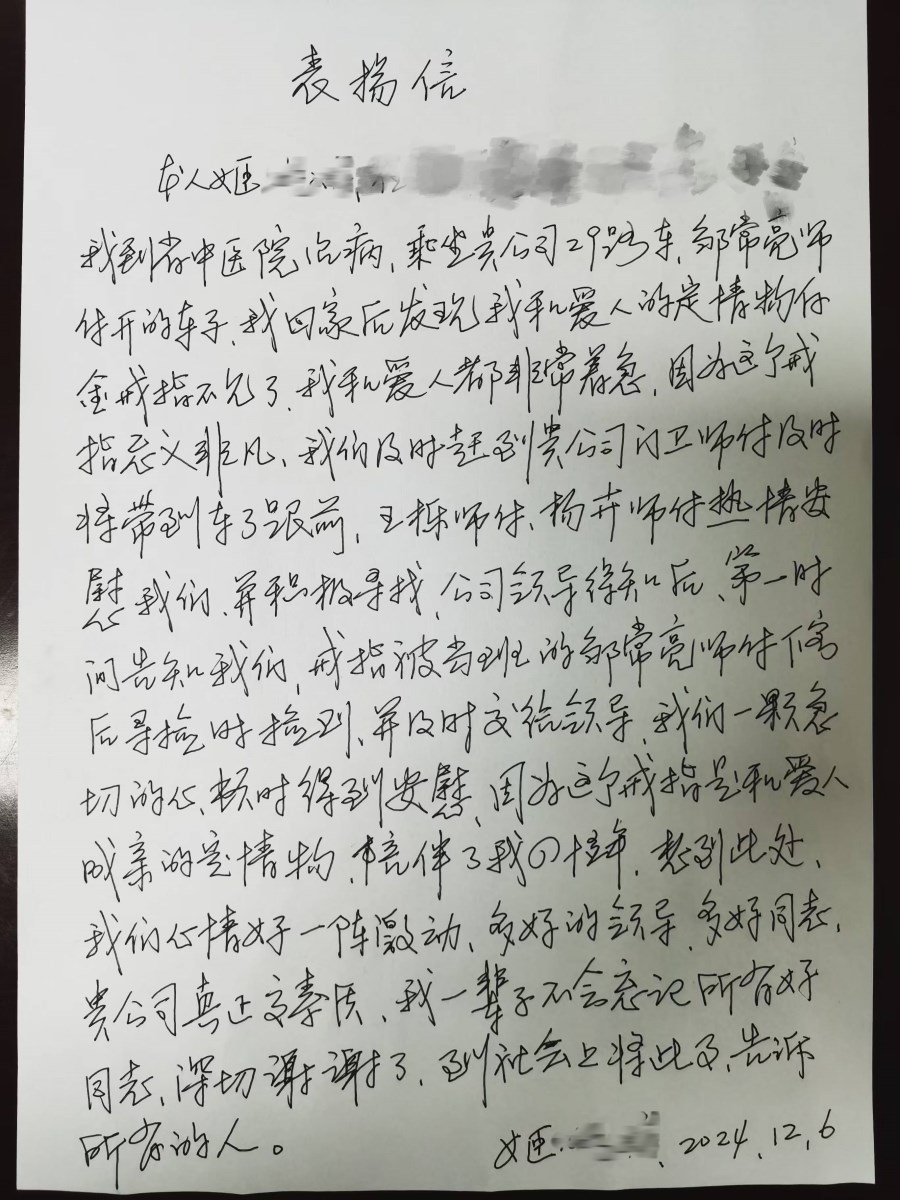 表扬信
本人姬
我到省中医院治病、乘坐贵公司29路车、邹常亮师
付开的车子、我回家后发现我和爱人的定情物件
金戒指不见了、我和爱人都非常着急、因为这个戒
指意义非凡、我们及时赶到贵公司门卫师付及时
将带到车子跟前，王栋师付、杨卉师付热情安
慰我们、并积极寻找、公司领导得知后、第一时
间告知我们、戒指被当班的邹常亮师付下客
后寻捡时捡到、并及时交给领导、我们一颗急
切的心、顿时得到安慰、因为这个戒指是和爱人
成亲的定情物、陪伴了我四十年、想到此处、
我们心情好一阵激动、多好的领导、多好同志、
贵公司真正高素质、我一辈子不会忘记所有好
同志、深切谢谢了、到社会上将此事、告诉
所有的人。
姬 2024.12.6